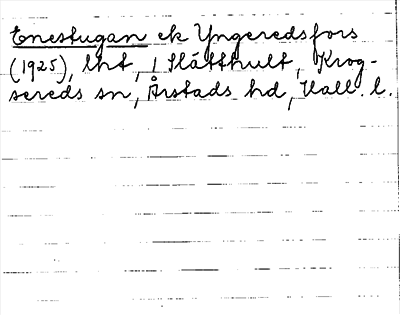 Enestugan ek Yngeredsfors
(1925), lht, 1 Slätthult, Krog-
sereds sn, Årstads hd, Hall. l.